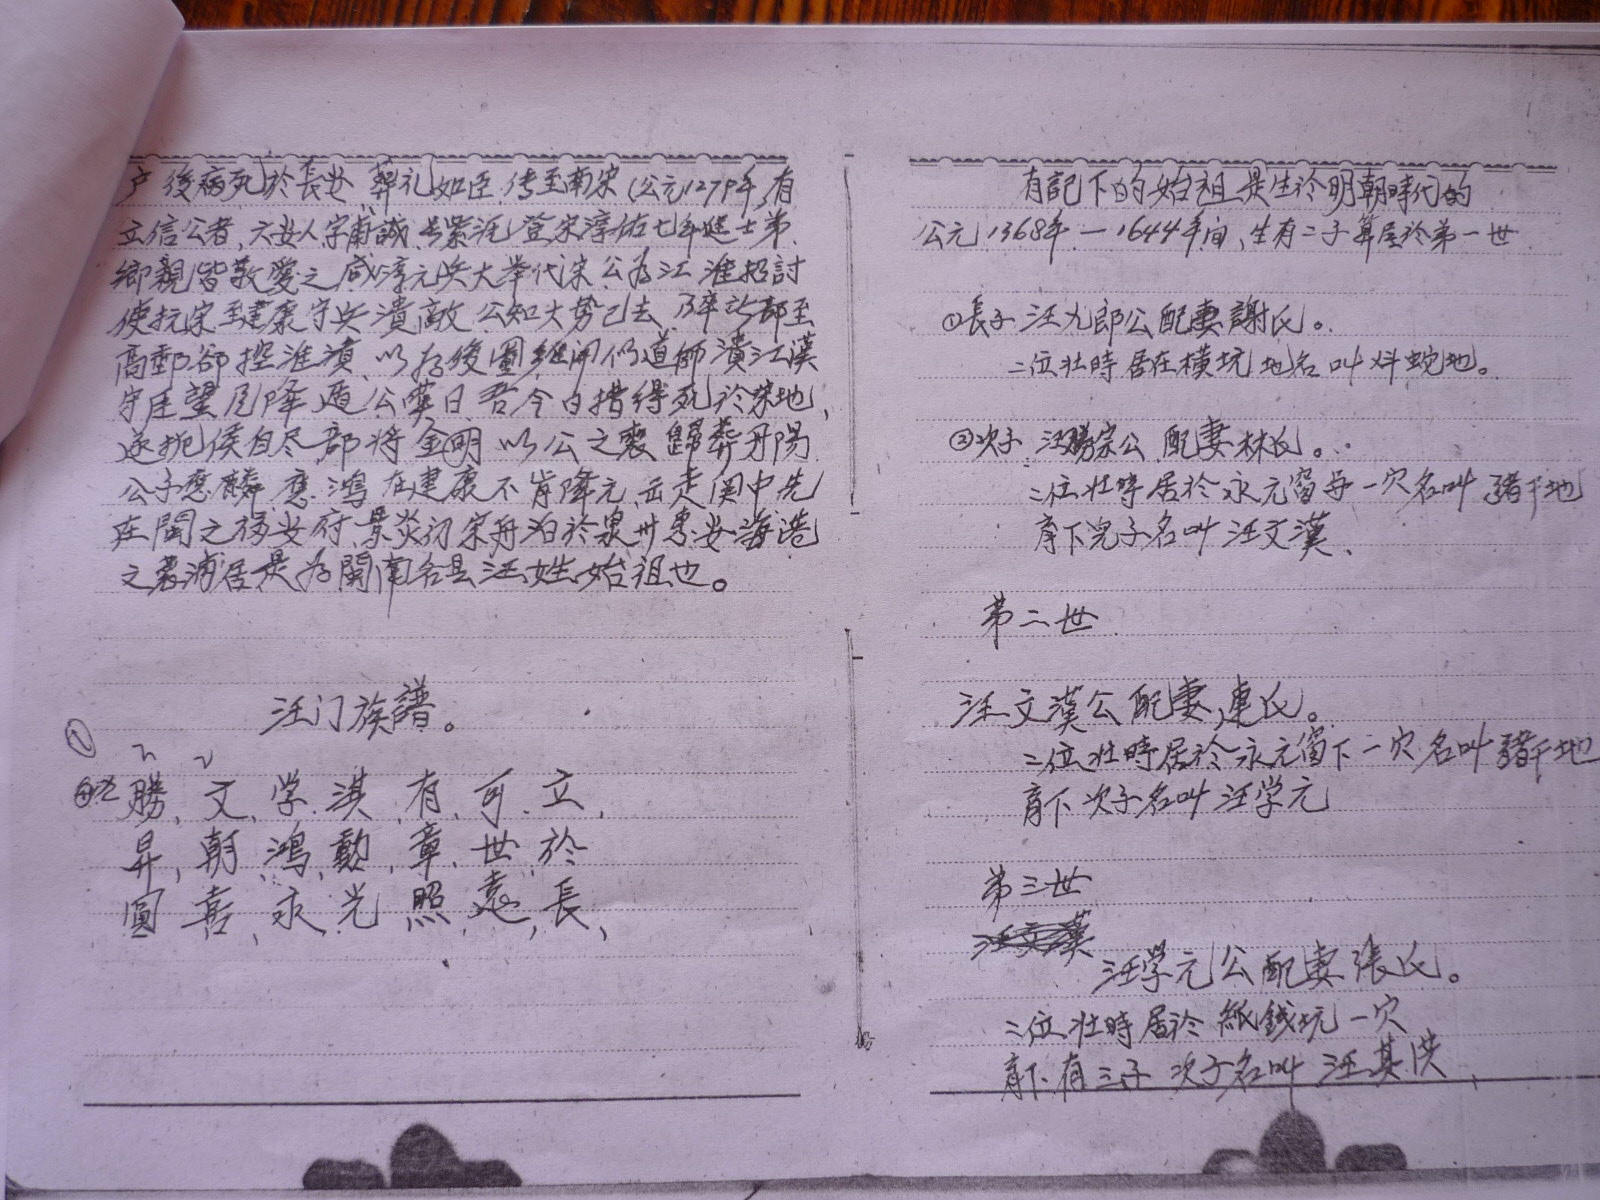 户後病死於長安 葬礼如臣 传至南宋(公元1279年,有
立信公者,六安人字甫誠,号紫沅 登宋淳佑七年进士第、
鄉親皆敬愛之 咸淳元兵大举伐宋 公為江淮招討
使抗宋至建康守兵潰敵 公知大势已去 乃率所部至
高郵郤控淮漬、以存後圖継聞似道師潰江漢
守臣望風降遁 公嘆日 吾今日措得死於宋地,
遂扼侯自尽 部将金明 以公之喪歸葬丹陽
公子應麟 應鴻 在建康不肯降元 去走闽中先
在閩之福安府 景炎初宋舟泊於泉州惠安海港
之 浦居是為閩南各县汪姓始祖也。
汪门族譜。
①
勝,文,学,淇,有,可,立,
昇,朝,鴻,勳,章,世,於
圓,喜,永,光,照,遠,長,
有記下的始祖是生於明朝時代的
公元1368年—1644年间、生有二子算居於第一世
①長子 汪九郎公配妻謝氏。
二位壮時居在横坑 地名叫 蛇地。
②次子 汪勝宗公 配妻林氏。
二位壮時居於永元 一穴名叫豬干地
育下児子名叫汪文漢、
第二世
汪文漢公配妻連氏。
二位壮時居於永元 下一穴名叫豬干地
育下次子名叫汪学元
第三世
汪文漢
汪学元公配妻張氏。
二位壮時居於紙錢坑一穴
育下有三子 次子名叫 汪其淇